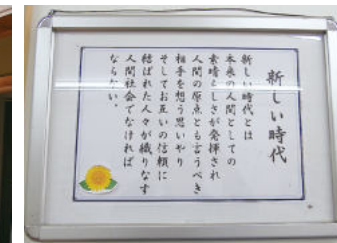 新しい時代
新しい時代とは
本来の人間としての
素晴らしさが発揮され
人間の原点とも言うべき
相手を想う思いやり
そしてお互いの信頼に
結ばれた人々が織りなす
人間社会でなければ
ならない。